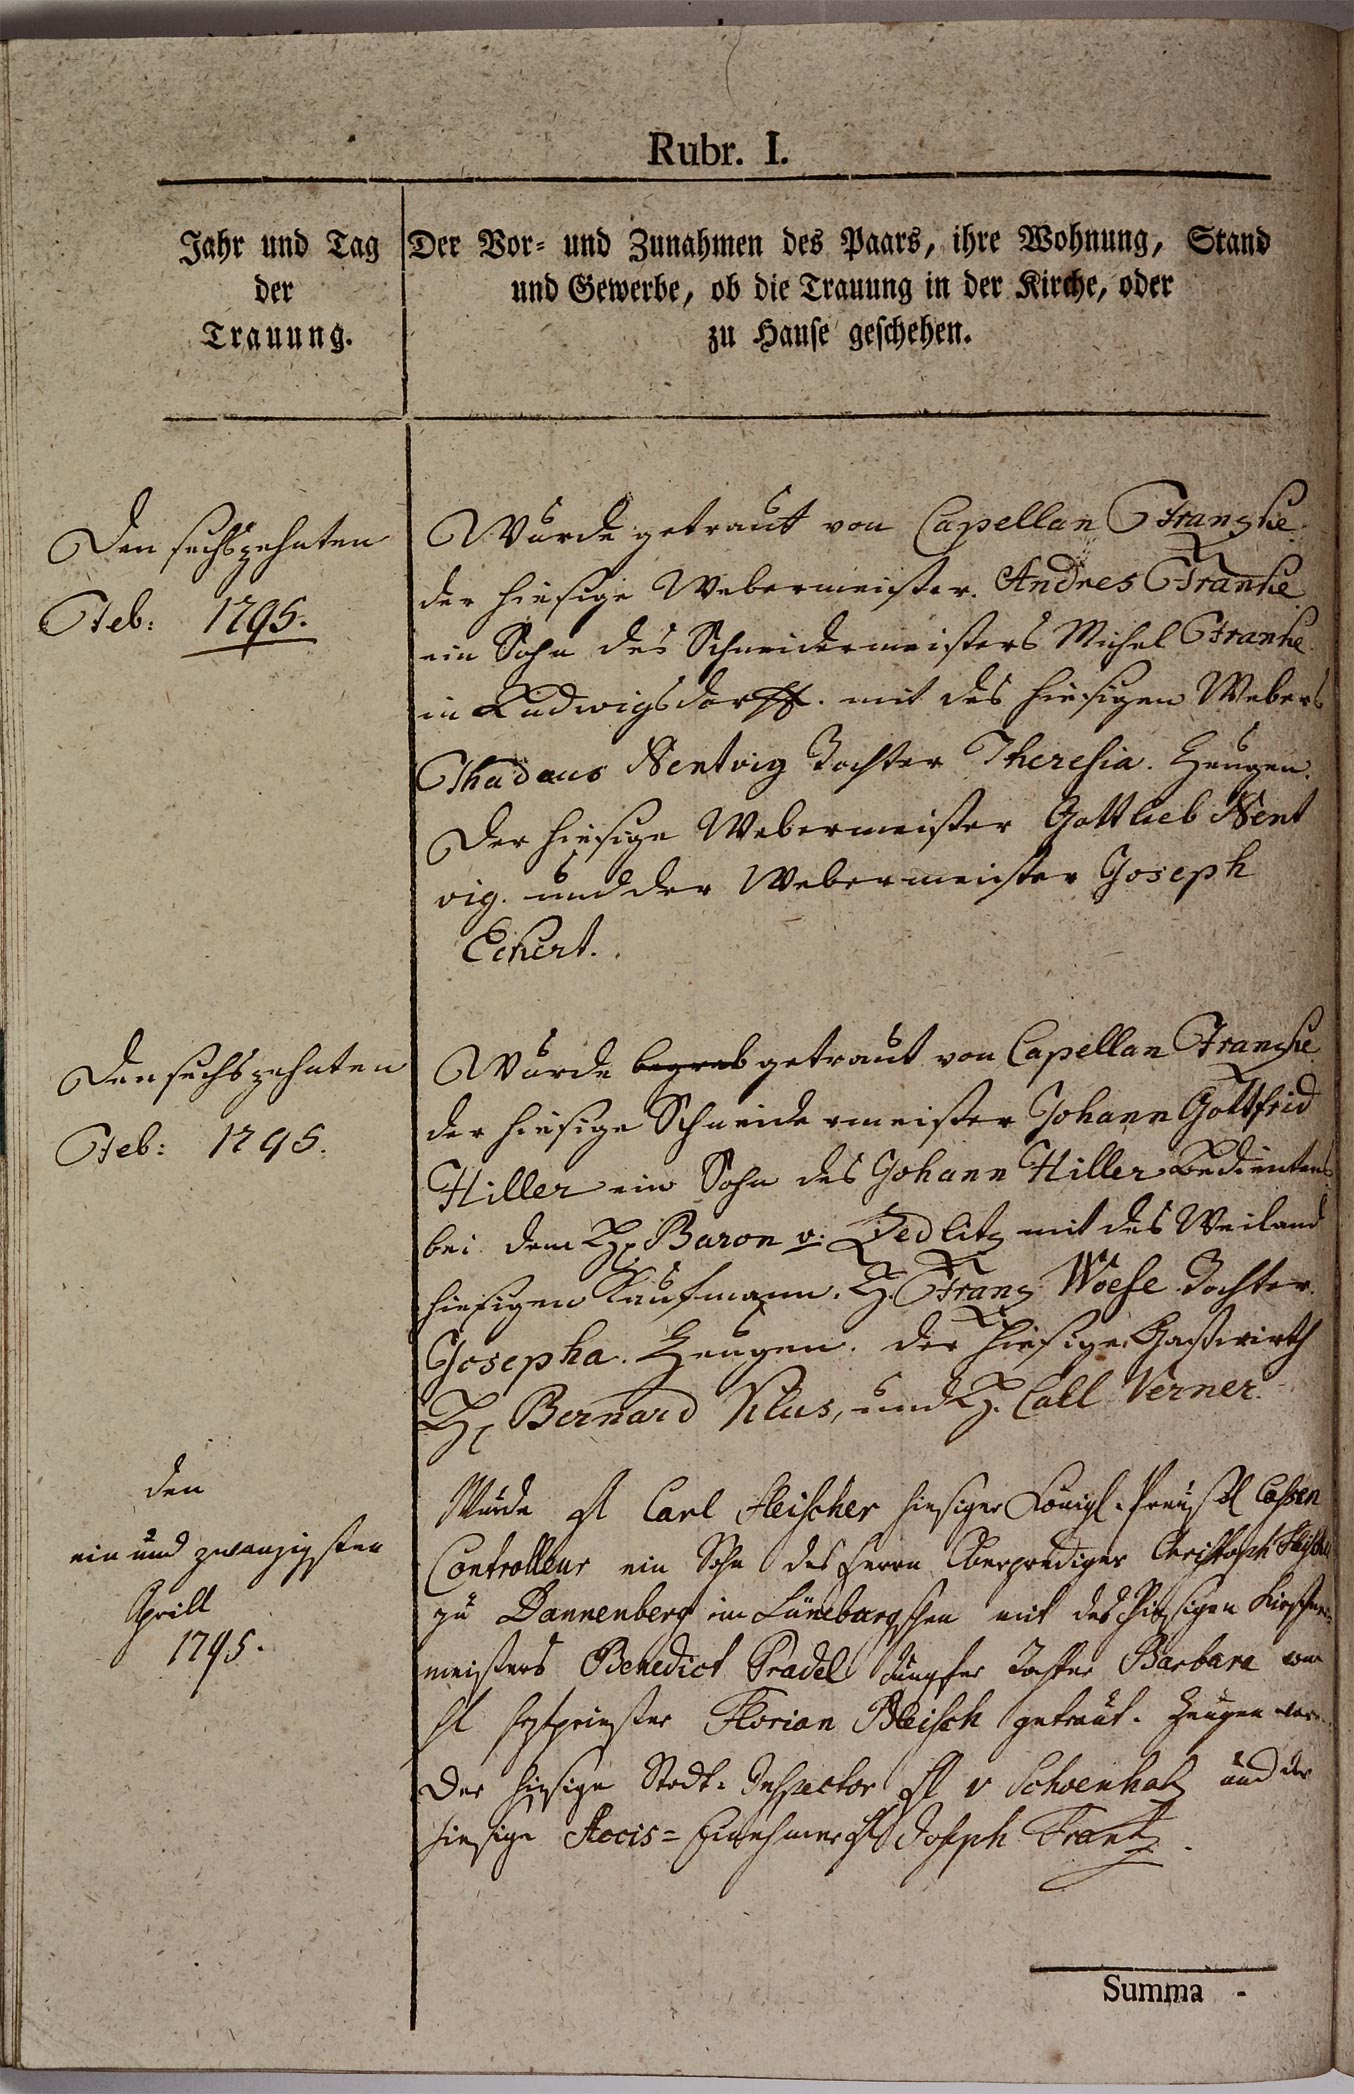 Rubr. I.
Jahr und Tag
der
Trauung.
Der Vor- und Zunahmen des Paars, ihre Wohnung, Stand
und Gewerbe, ob die Trauung in der Kirche, oder
zu Hause geschehen.
Den sechszehnten
Feb: 1795.
Wurde getraut von Capellan Franzke
der hiesige Webermeister. Andres Franke
ein Sohn des Schneidermeisters Michel Franke
in Ludwigsdorff. mit des hiesigen Webers
Thadaus Nentvig Tochter Theresia. Zeugen.
Der hiesige Webermeister Gottlieb Nent
vig. und der Webermeister Joseph
Eckert.
Den sechszehnten
Feb: 1795.
Wurde begrab getraut von Capellan Franzke
der hiesige Schneidermeister Johann Gottfrid
Hiller ein Sohn des Johann Hiller Bedientens
bei dem H. Baron v: Zedlitz mit des Weiland
hiesigen Kaufmann. H. Franz Woese Tochter.
Josepha. Zeugen. der hiesige Gastwirth
H. Bernard Klus, und H. Call Verner.
den
ein und zwanzigsten
Aprill
1795.
Wurde H Carl Fleischer hiesiger Königl. Preuß Cassen
Controlleur ein Sohn des Herrn Oberprediger Christoph
zu Dannenberg im Lüneburgschen mit des hiesigen
meisters Benedict Pradel Jungfer Tochter Barbara von
H Erzpriester Florian Bleisch getraut. Zeugen
Der hiesige Stadt-Inspector H v und der
hiesige Accis-Einehmer H Joseph Frantz.
Summa -